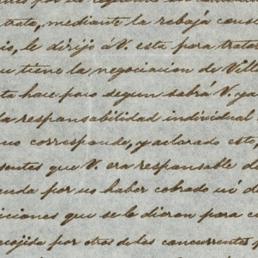 trato, mediante la rebaja conse
io, le dirijo á V. esta para tratar
u tiene la negociacion de Ville
ta hace poco segun sabrá V. ya
la responsabilidad individual
no corresponde, y aclarado esto,
sentes que V. era responsable de
anda por no haber cobrado ni d
iciones que se le dieron para co
cojida por otros de los concurrentes p